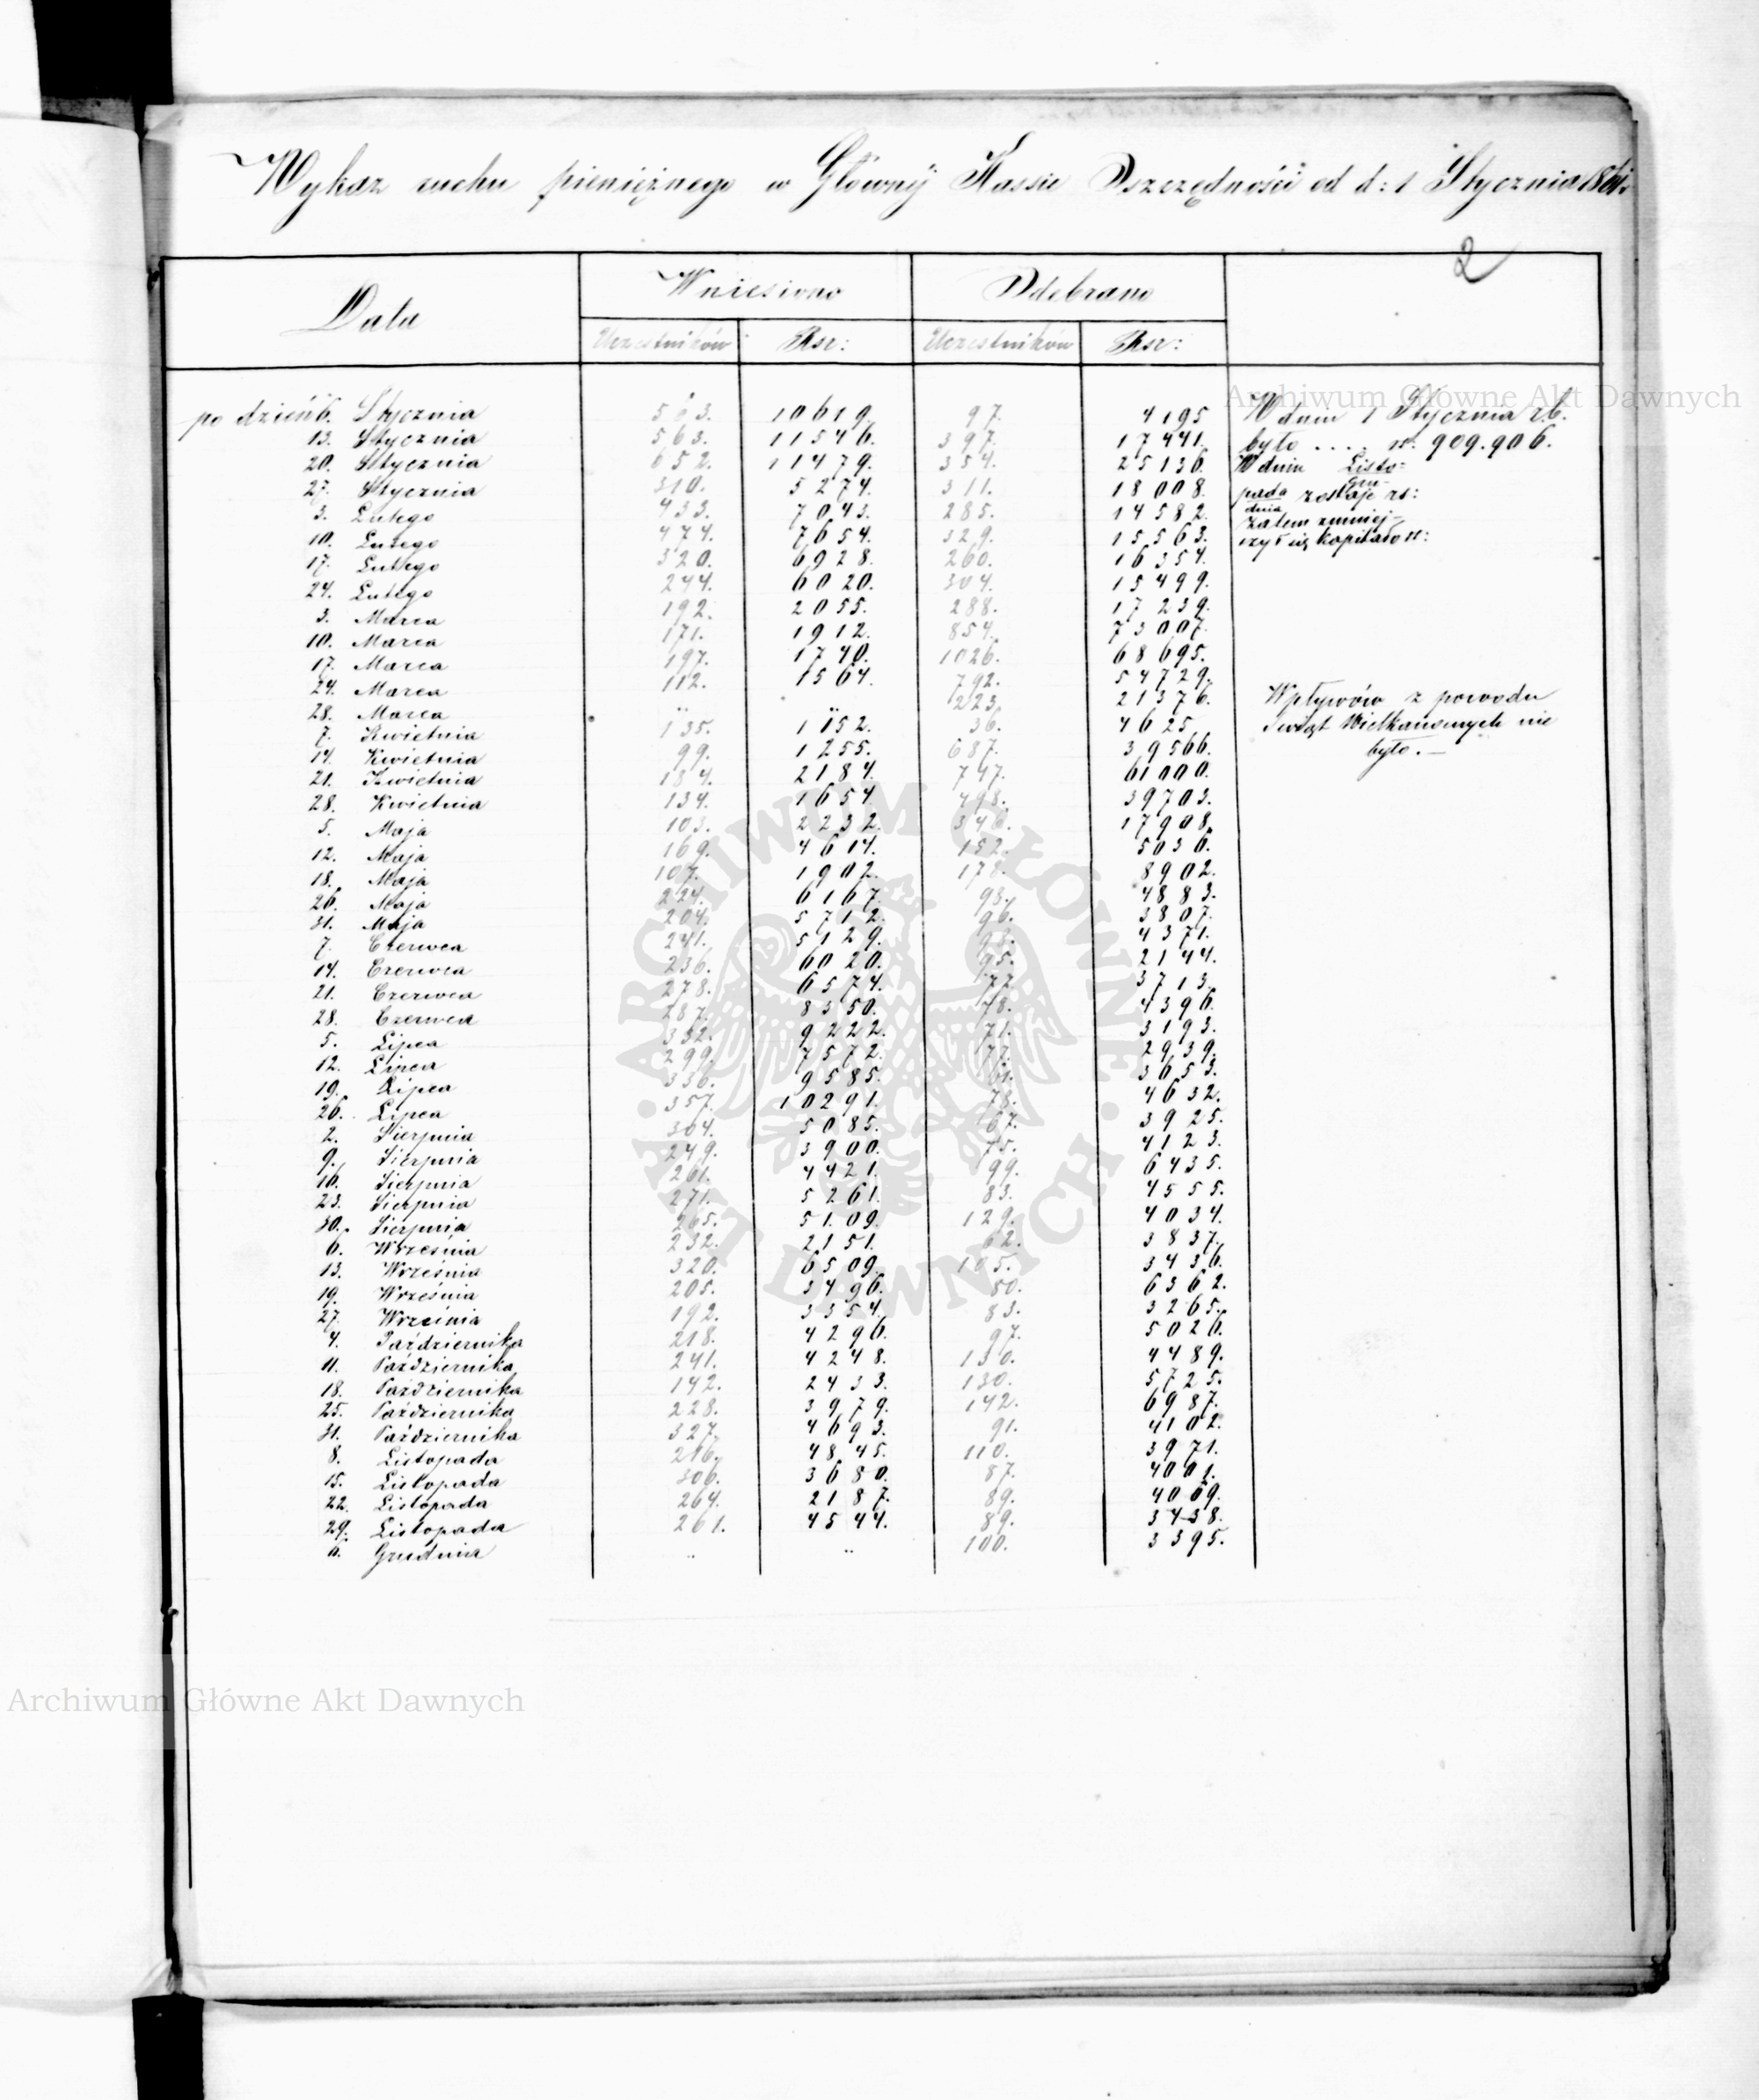 Wykaz ruchu pieniężnego w Głównéj Kassie Oszczędności od d: 1 Stycznia 1861 r
2
Data Wniesiono Odebrano
Uczestników Rsr: Uczestników Rsr:
Archiwum Główne Akt Dawnych
po dzień 6. Stycznia 563. 10619. 97. 4195 W dniu 1 Stycznia rb.
13. Stycznia 563. 11546. 397. 17441. było .... rs. 909.906.
20. Stycznia 652. 11479. 354. 25136. W dniu Listo-
27. Stycznia 310. 5274. 311. 18008. pada Gru- zostaje rs:
3. Lutego 433. 7043. 285. 14582. dnia zatem zmniej-
10. Lutego 474. 7654. 329. 15563. szył się kapitał o rs:
17. Lutego 320. 6928. 260. 16354.
24. Lutego 244. 6020. 304. 15499.
3. Marca 192. 2055. 288. 17239.
10. Marca 171. 1912. 854. 73007.
17. Marca 197. 1740. 1026. 68695.
24. Marca 112. 1564. 792. 54729.
28. Marca " " 223. 21376. Wpływów z powodu
7. Kwietnia 135. 1152. 36. 4625 Świąt Wielkanocnych nie
14. Kwietnia 99. 1255. 687. 39566. było. —
21. Kwietnia 184. 2184. 747. 61000.
28. Kwietnia 134. 1654 498. 39703.
5. Maja 103. 2232. 346. 17908.
12. Maja 169. 4614. 152. 5036.
18. Maja 107. 1902. 178. 8902.
26. Maja 224. 6167. 93. 4883.
31. Maja 204. 5712. 96. 3807.
7. Czerwca 241. 5129. 93. 4371.
14. Czerwca 236. 6020. 95. 2144.
21. Czerwca 278. 6574. 77. 3713.
28. Czerwca 287. 8350. 78. 4396.
5. Lipca 332. 9222. 71. 3193.
12. Lipca 299. 7572. 77. 2939.
19. Lipca 336. 9585. 61. 3653.
26. Lipca 357. 10291. 78. 4632.
2. Sierpnia 304. 5085. 67. 3925.
9. Sierpnia 249. 3900. 75. 4123.
16. Sierpnia 261. 4421. 99. 6435.
23. Sierpnia 271. 5261. 83. 4555.
30. Sierpnia 265. 5109. 129. 4034.
6. Września 232. 2151. 62. 3837.
13. Września 320. 6509. 105. 3436.
19. Września 205. 3496. 50. 6362.
27. Września 192. 3354. 83. 3265.
4. Października 218. 4296. 97. 5026.
11. Października 241. 4248. 130. 4489.
18. Października 142. 2433. 130. 5725.
25. Października 228. 3979. 142. 6987.
31. Października 327. 4693. 91. 4102.
8. Listopada 216. 4845. 110. 3971.
15. Listopada 306. 3680. 87. 4001.
22. Listopada 264. 2187. 89. 4069.
29. Listopada 261. 4544. 89. 3438.
6. Grudnia " " 100. 3395.
ARCHIWUM GŁÓWNE AKT DAWNYCH
Archiwum Główne Akt Dawnych